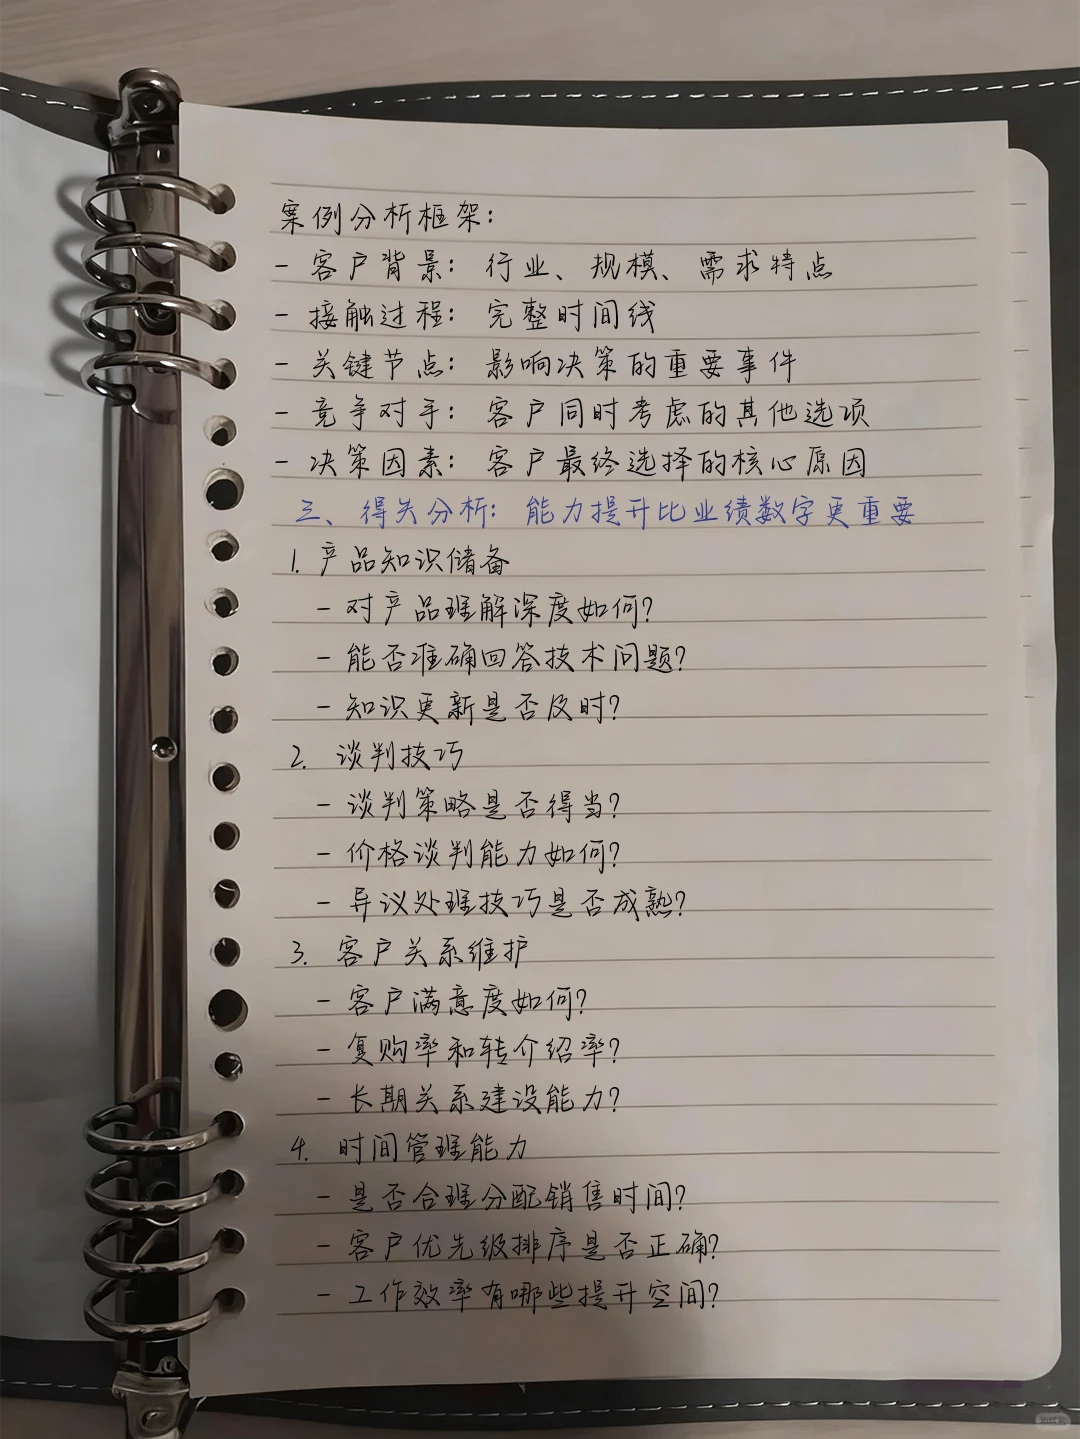 案例分析框架：
- 客户背景：行业、规模、需求特点
- 接触过程：完整时间线
- 关键节点：影响决策的重要事件
- 竞争对手：客户同时考虑的其他选项
- 决策因素：客户最终选择的核心原因
三、得失分析：能力提升比业绩数字更重要
1. 产品知识储备
- 对产品理解深度如何？
- 能否准确回答技术问题？
- 知识更新是否及时？
2. 谈判技巧
- 谈判策略是否得当？
- 价格谈判能力如何？
- 异议处理技巧是否成熟？
3. 客户关系维护
- 客户满意度如何？
- 复购率和转介绍率？
- 长期关系建设能力？
4. 时间管理能力
- 是否合理分配销售时间？
- 客户优先级排序是否正确？
- 工作效率有哪些提升空间？